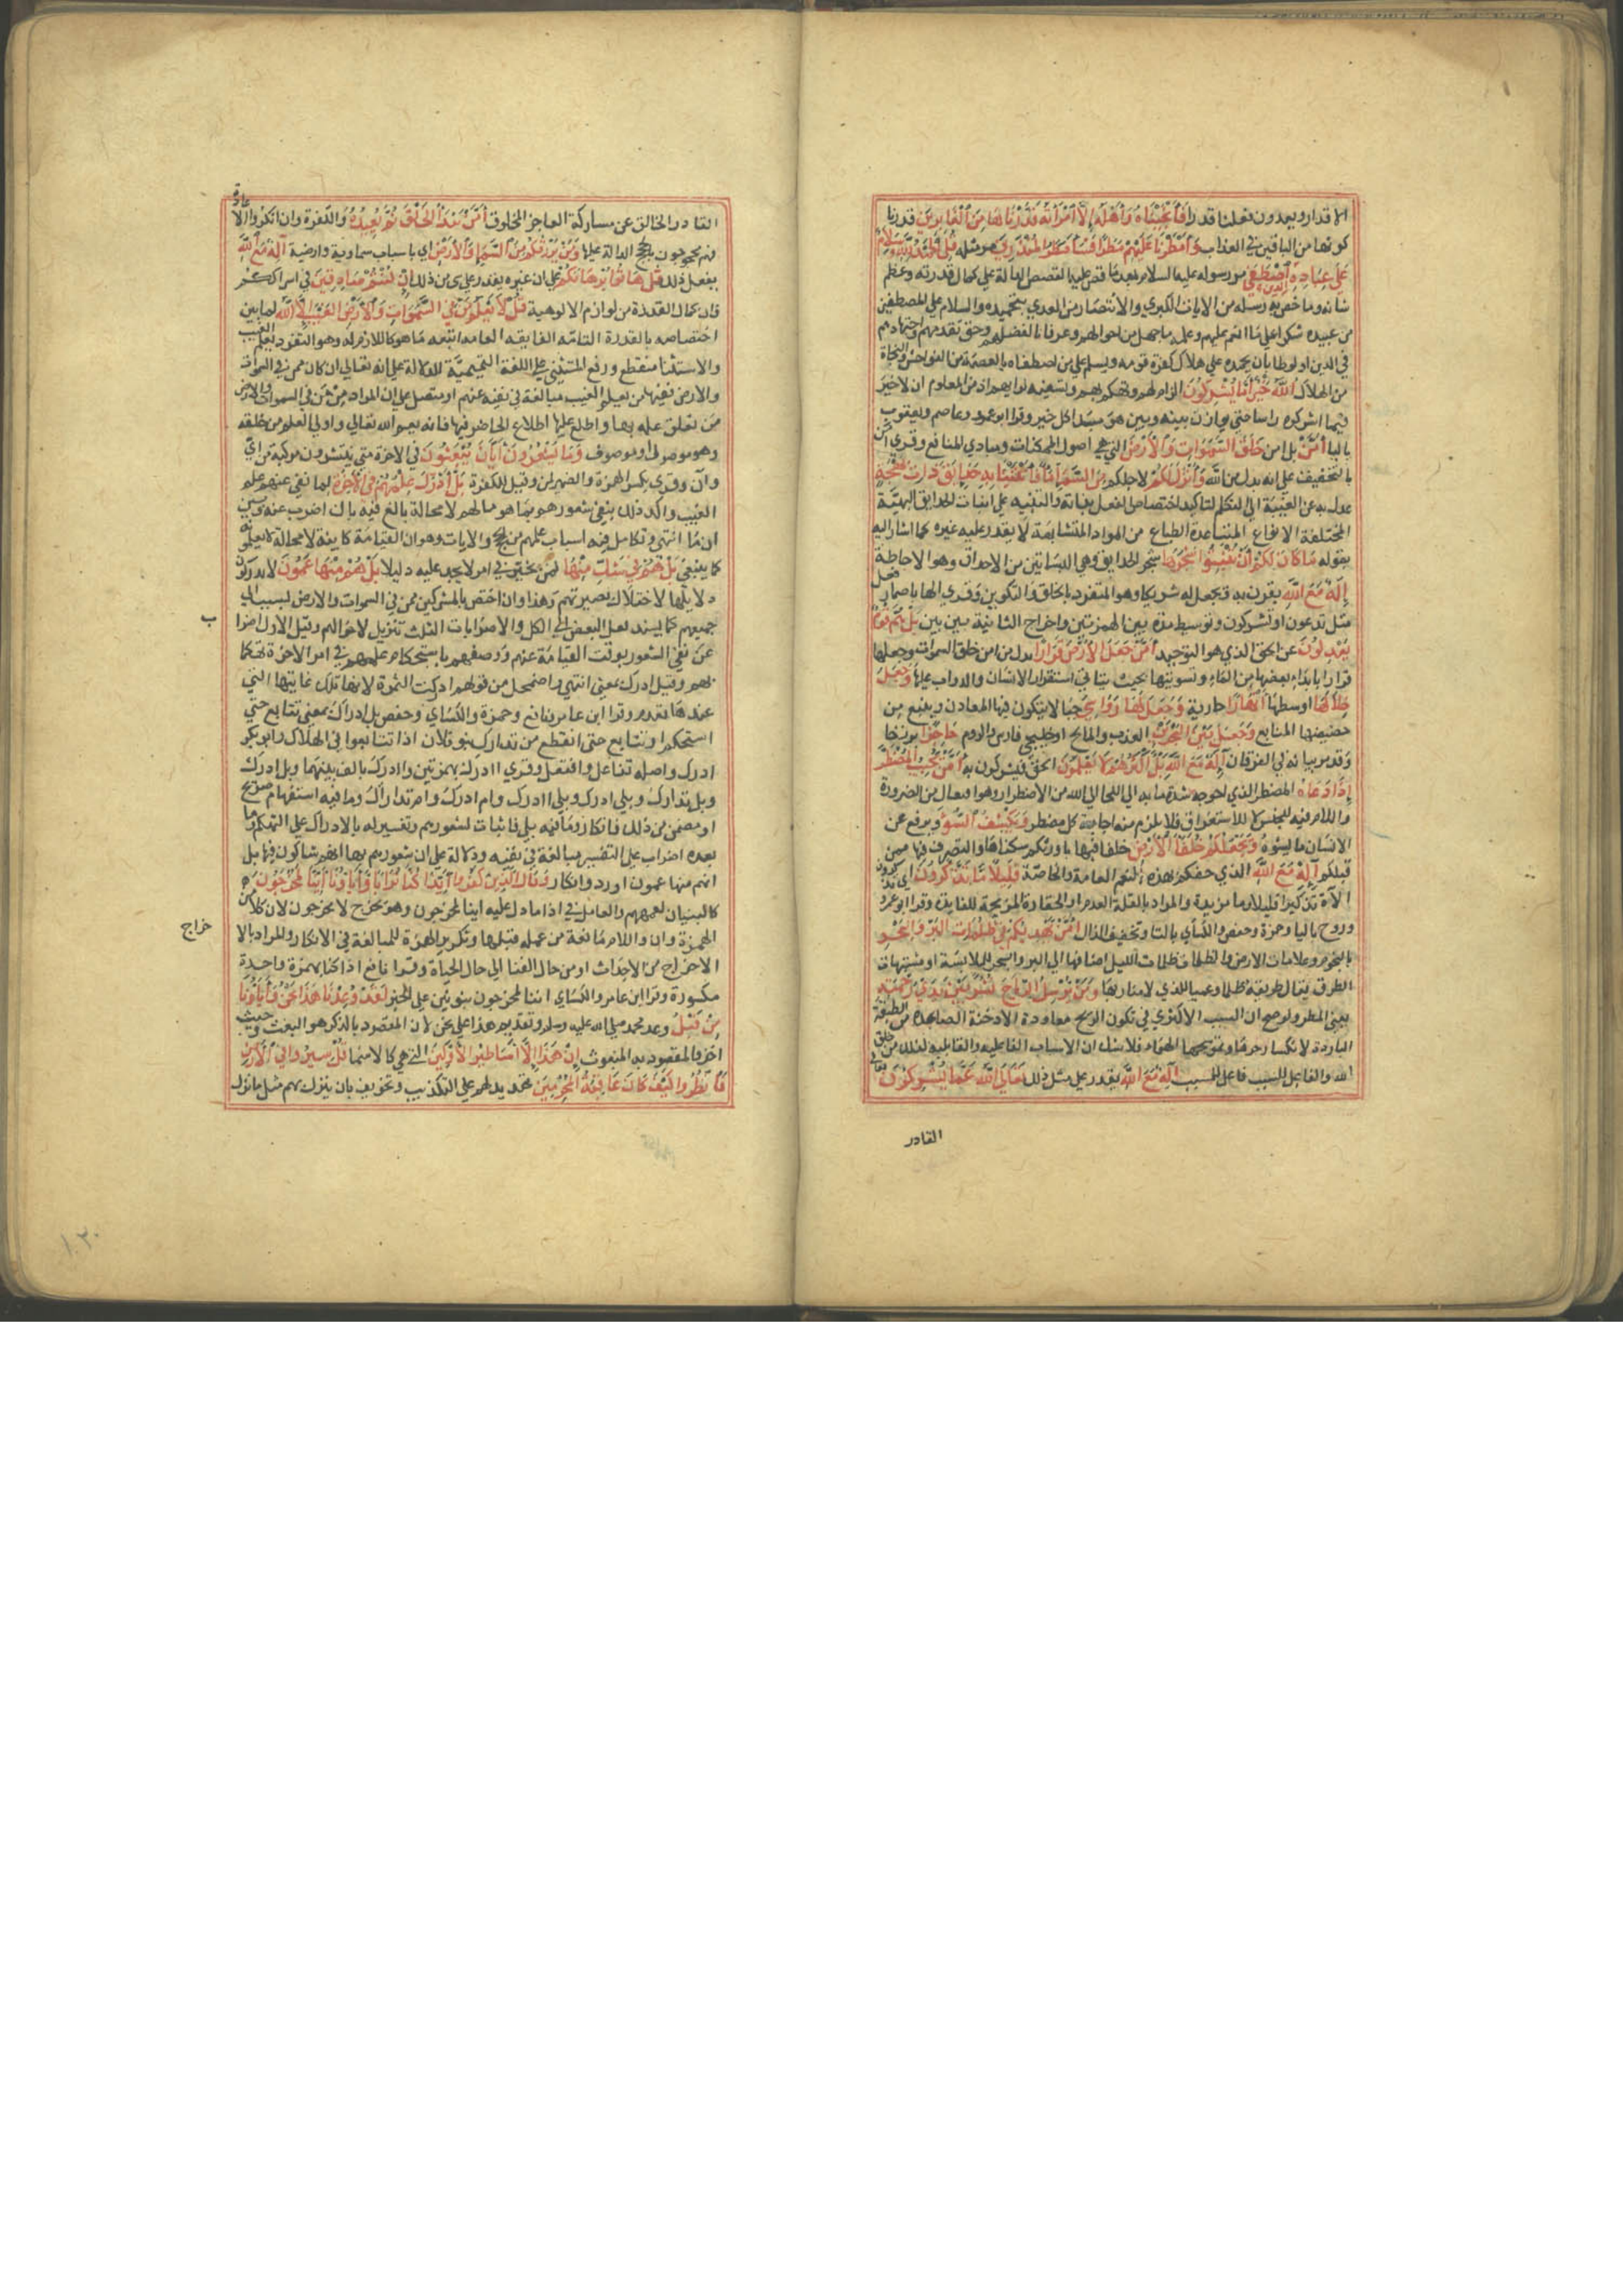 الاقدار ويعدون تعلمنا قدرا فَأَنْجَيْنَاهُ وَأَهْلَهُ إِلَّا امْرَأَتَهُ قَدَّرْنَاهَا مِنَ الْغَابِرِينَ قدرنا
كونها من الباقين في العذاب وَأَمْطَرْنَا عَلَيْهِمْ مَطَرًا فَسَاءَ مَطَرُ الْمُنْذَرِينَ مر مثله قُلِ الْحَمْدُ لِلَّهِ وَسَلَامٌ
عَلَى عِبَادِهِ الَّذِينَ اصْطَفَى امر رسوله عليه السلام بعد ما قص عليه القصص الدالة على كمال قدرته وعظم
شانه وما خص به رسله من الايات الكبرى والانتصار من العدى بتحميده والسلام على المصطفين
من عبيده شكرا على ما انعم عليهم وعلمه ما جهل من احوالهم وعرفانا لفضلهم وحق تقدمهم واجتهادهم
في الدين او لوطا بان يحمده على هلاك كفرة قومه ويسلم على من اصطفاه بالعصمة من الفواحش والنجاة
من الهلاك آللَّهُ خَيْرٌ أَمَّا يُشْرِكُونَ الزام لهم وتهكم بهم وتسفيه لرايهم اذ من المعلوم ان لا خير
فيما اشركوه راسا حتى يوازن بينه وبين من هو مبدا كل خير وقرا ابو عمرو وعاصم ويعقوب
باليا أَمَّنْ بل امن خَلَقَ السَّمَوَاتِ وَالْأَرْضَ التي هي اصول الكائنات ومبادي المنافع وقري امن
بالتخفيف على انه بدل من الله وَأَنْزَلَ لَكُمْ لاجلكم مِنَ السَّمَاءِ مَاءً فَأَنْبَتْنَا بِهِ حَدَائِقَ ذَاتَ بَهْجَةٍ
عدل به عن الغيبة الى التكلم لتاكيد اختصاص الفعل بذاته والتنبيه على ان انبات الحدايق البهية
المختلفة الانواع المتباعدة الطباع من المواد المتشابهة لا يقدر عليه غيره كما اشار اليه
بقوله مَا كَانَ لَكُمْ أَنْ تُنْبِتُوا شَجَرَهَا شجر الحدايق وهي البساتين من الاحداق وهو الاحاطة
أَإِلَهٌ مَعَ اللَّهِ يقرن به ويجعل له شريكا وهو المتفرد بالخلق والتكوين وقري الها باضمار فعل
مثل تدعون او تشركون وتوسيط مدة بين الهمزتين واخراج الثانية بين بين بَلْ هُمْ قَوْمٌ
يَعْدِلُونَ عن الحق الذي هو التوحيد أَمَّنْ جَعَلَ الْأَرْضَ قَرَارًا بدل من امن خلق السموات وجعلها
قرارا بابداء بعضها من الماء وتسويتها بحيث يتاتى استقرار الانسان والدواب عليها وَجَعَلَ
خِلَالَهَا اوسطها أَنْهَارًا جارية وَجَعَلَ لَهَا رَوَاسِيَ جبالا يتكون فيها المعادن وينبع من
حضيضها المنابع وَجَعَلَ بَيْنَ الْبَحْرَيْنِ العذب والمالح او خليجي فارس والروم حَاجِزًا برزخا
وقد مر بيانه في الفرقان أَإِلَهٌ مَعَ اللَّهِ بَلْ أَكْثَرُهُمْ لَا يَعْلَمُونَ الحق فيشركون به أَمَّنْ يُجِيبُ الْمُضْطَرَّ
إِذَا دَعَاهُ المضطر الذي احوجه شدة ما به الى اللجا الى الله من الاضطرار وهو افتعال من الضرورة
واللام فيه للجنس لا للاستغراق فلا يلزم منه اجابة كل مضطر وَيَكْشِفُ السُّوءَ ويرفع عن
الانسان ما يسوه وَيَجْعَلُكُمْ خُلَفَاءَ الْأَرْضِ خلفا فيها بان ورثكم سكناها والتصرف فيها ممن
قبلكم أَإِلَهٌ مَعَ اللَّهِ الذي حفكم بهذه النعم العامة والخاصة قَلِيلًا مَا تَذَكَّرُونَ اي تذكرون
الاه تذكيرا قليلا وما مزيدة والمراد بالقلة العدم او الحقارة المزيحة للفايدة وقرا ابو عمرو
وروح باليا وحمزة وحفص والكسائي بالتا وتخفيف الذال أَمَّنْ يَهْدِيكُمْ فِي ظُلُمَاتِ الْبَرِّ وَالْبَحْرِ
بالنجوم وعلامات الارض والظلمات ظلمات الليل اضافها الى البر والبحر للملابسة او مشتبهات
الطرق يقال طريقة ظلما وعميا للذي لا منار بها وَمَنْ يُرْسِلُ الرِّيَاحَ نُشُرًا بَيْنَ يَدَيْ رَحْمَتِهِ
يعني المطر ولو صح ان السبب الاكثري في تكون الريح معاودة الادخنة الصاعدة من الطبقة
الباردة لانكسار حرها وتمويجها الهواء فلا شك ان الاسباب الفاعلية والقابلية لذلك من خلق
الله والفاعل للسبب فاعل للمسبب أَإِلَهٌ مَعَ اللَّهِ يقدر على مثل ذلك تَعَالَى اللَّهُ عَمَّا يُشْرِكُونَ تعالى
القادر
القادر الخالق عن مشاركة العاجز المخلوق أَمَّنْ يَبْدَأُ الْخَلْقَ ثُمَّ يُعِيدُهُ والكفرة وان انكروا الاعادة
فهم محجوجون بالحجج الدالة عليها وَمَنْ يَرْزُقُكُمْ مِنَ السَّمَاءِ وَالْأَرْضِ اي باسباب سماوية وارضية أَإِلَهٌ مَعَ اللَّهِ
يفعل ذلك قُلْ هَاتُوا بُرْهَانَكُمْ على ان غيره يقدر على شي من ذلك إِنْ كُنْتُمْ صَادِقِينَ في اشراككم
فان كمال القدرة من لوازم الالوهية قُلْ لَا يَعْلَمُ مَنْ فِي السَّمَوَاتِ وَالْأَرْضِ الْغَيْبَ إِلَّا اللَّهُ لما بين
اختصاصه بالقدرة التامة الفايقة العامة اتبعه ما هو كاللازم له وهو التفرد بعلم الغيب
والاستثنا منقطع ورفع المستثنى على اللغة التميمية للدلالة على انه تعالى ان كان ممن في السموات
والارض ففيها من يعلم الغيب مبالغة في نفيه عنهم او متصل على ان المراد ممن في السموات والارض
من تعلق علمه بها واطلع عليها اطلاع الحاضر فيها فانه يعم الله تعالى واولي العلم من خلقه
وهو موصول او موصوف وَمَا يَشْعُرُونَ أَيَّانَ يُبْعَثُونَ في الاخرة متى ينشرون مركبة من اي
وآن وقري بكسر الهمزة والضمير لمن وقيل للكفرة بَلِ ادَّارَكَ عِلْمُهُمْ فِي الْآخِرَةِ لما نفى عنهم علم
الغيب واكد ذلك بنفي شعورهم بما هو مآلهم لا محالة بالغ فيه بان اضرب عنه وبين
ان ما انتهى وتكامل فيه اسباب علمهم من الحجج والايات وهو ان القيامة كاينة لا محالة لا يعلمونه
كما ينبغي بَلْ هُمْ فِي شَكٍّ مِنْهَا كمن تحير في امر لا يجد عليه دليلا بَلْ هُمْ مِنْهَا عَمُونَ لا يدركون
دلايلها لاختلال بصيرتهم وهذا وان اختص بالمشركين ممن في السموات والارض نسب الى
جميعهم كما يسند فعل البعض الى الكل والاضرابات الثلث تنزيل لاحوالهم وقيل الاول اضراب
عن نفي الشعور بوقت القيامة عنهم ووصفهم باستحكام علمهم في امر الاخرة تهكما
بهم وقيل ادرك بمعنى انتهى واضمحل من قولهم ادركت الثمرة لانها تلك غايتها التي
عندها تعدم وقرا ابن عامر ونافع وحمزة والكسائي وحفص بل ادارك بمعنى تتابع حتى
استحكم او تتابع حتى انقطع من تدارك بنو فلان اذا تتابعوا في الهلاك وابو بكر
ادرك واصله تفاعل وافتعل وقري اادرك بهمزتين واادرك بالف بينهما وبل ادرك
وبل تدارك وبلى ادرك وبلى اادرك وام ادرك وام تدارك وما فيه استفهام صريح
او مضمن من ذلك فانكار وما فيه بلى فاثبات لشعورهم وتفسير له بالادراك على التهكم وما
بعده اضراب على التفسير مبالغة في نفيه ودلالة على ان شعورهم بها انهم شاكون فيها بل
انهم منها عمون او رد وانكار وَقَالَ الَّذِينَ كَفَرُوا أَئِذَا كُنَّا تُرَابًا وَآبَاؤُنَا أَئِنَّا لَمُخْرَجُونَ
كالبيان لعمههم والعامل في اذا ما دل عليه اينا لمخرجون وهو نخرج لا مخرجون لان كلا من
الهمزة وان واللام مانعة من عمله فيما قبلها وتكرير الهمزة للمبالغة في الانكار والمراد بالا
خراج
الاخراج من الاجداث او من حال الفنا الى حال الحياة وقرا نافع اذا كنا بهمزة واحدة
مكسورة وقرا ابن عامر والكسائي اننا لمخرجون بنونين على الخبر لَقَدْ وُعِدْنَا هَذَا نَحْنُ وَآبَاؤُنَا
مِنْ قَبْلُ وعد محمد صلى الله عليه وسلم وتقديم هذا على نحن لان المقصود بالذكر هو البعث وحيث
اخر فالمقصود به المبعوث إِنْ هَذَا إِلَّا أَسَاطِيرُ الْأَوَّلِينَ التي هي كالاسمار قُلْ سِيرُوا فِي الْأَرْضِ
فَانْظُرُوا كَيْفَ كَانَ عَاقِبَةُ الْمُجْرِمِينَ تهديد لهم على التكذيب وتخويف بان ينزل بهم مثل ما نزل